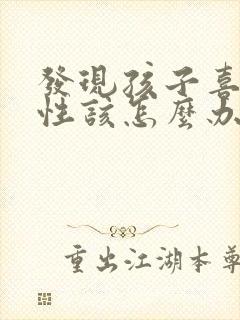 發現孩子喜
性該怎麼办
重出江湖本尊